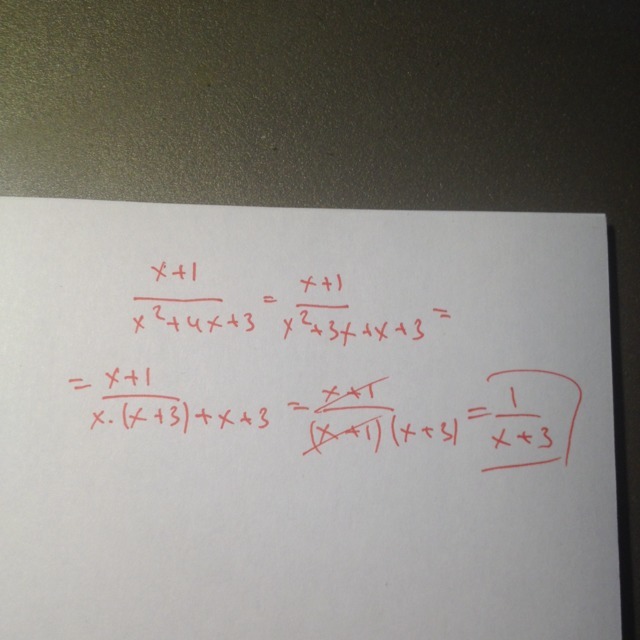 x+1/x²+4x+3 = x+1/x²+3x+x+3 =
= x+1/x·(x+3)+x+3 = x+1/(x+1)(x+3) = 1/x+3